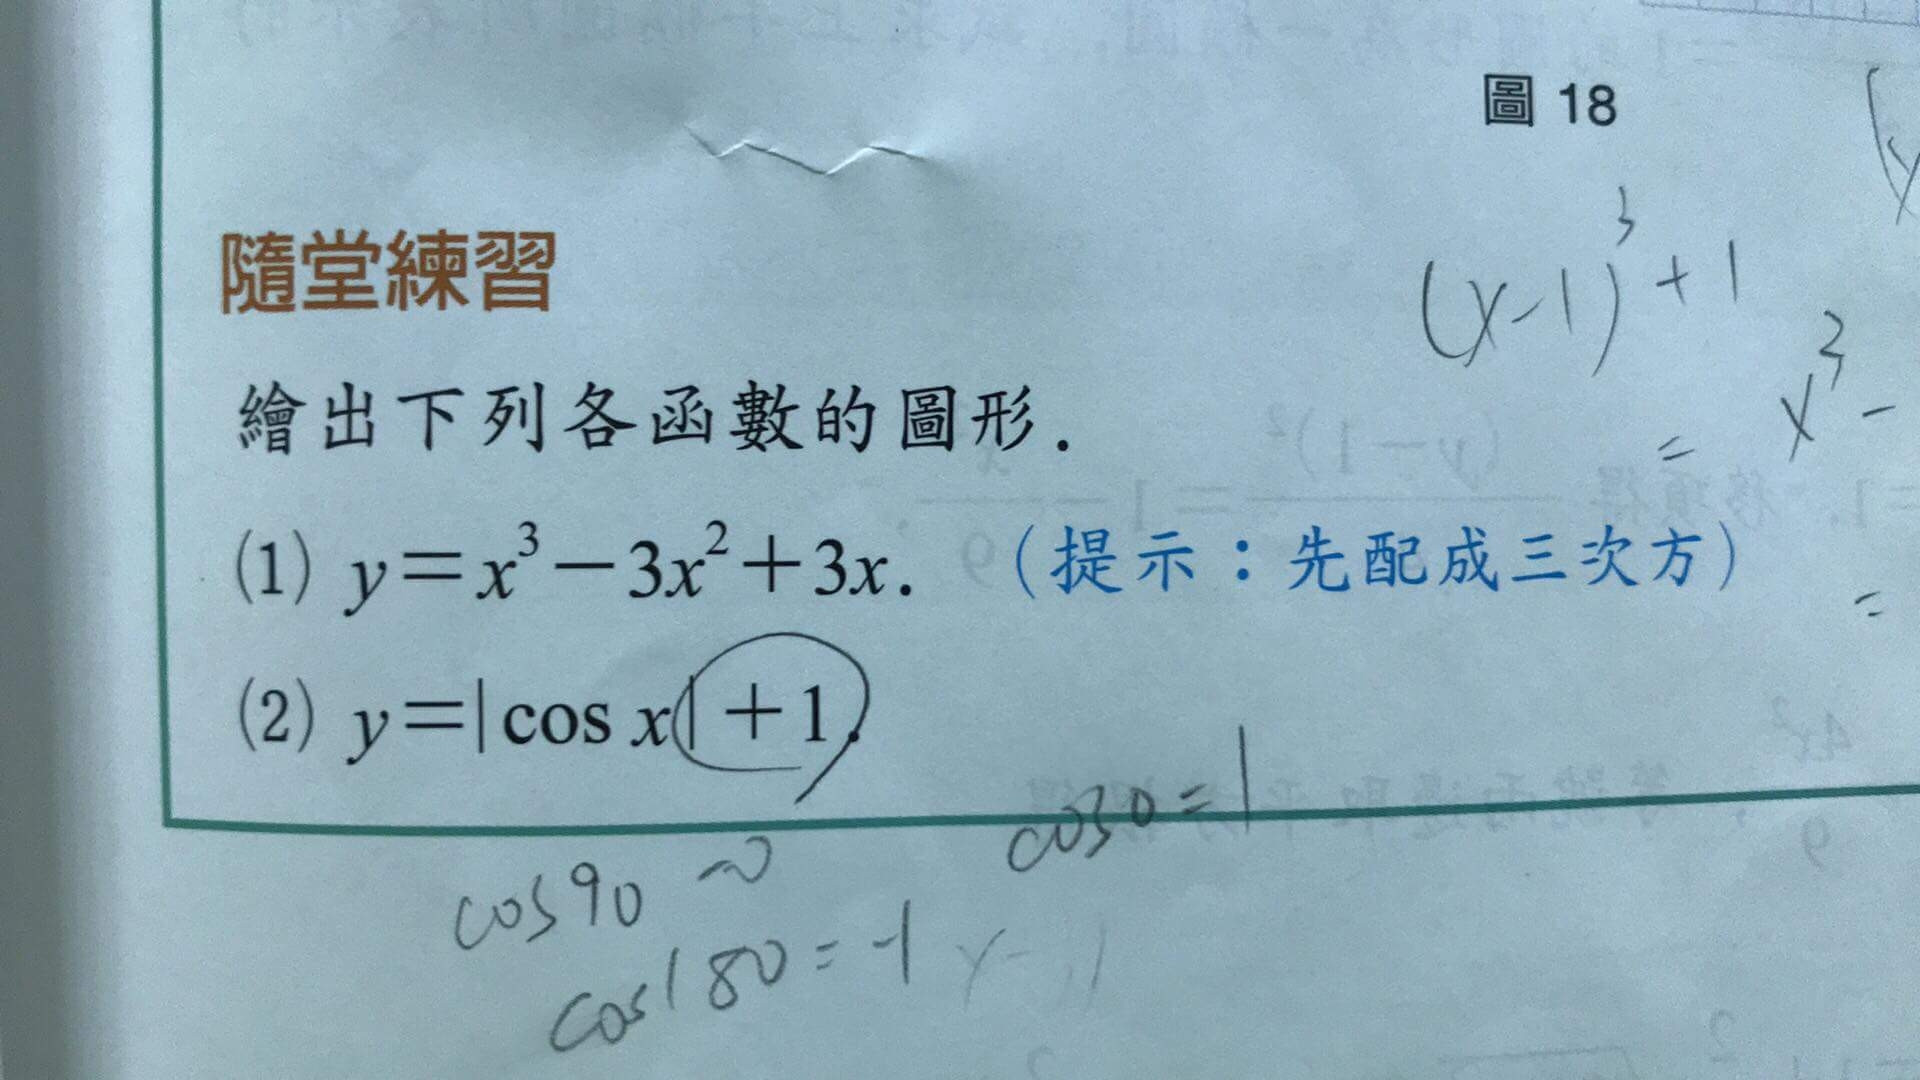 圖 18
(x-1)³+1
= x³-
=
隨堂練習
繪出下列各函數的圖形.
(1) y=x³-3x²+3x. (提示：先配成三次方)
(2) y=|cos x|+1.
cos0=1
cos90
cos180=-1